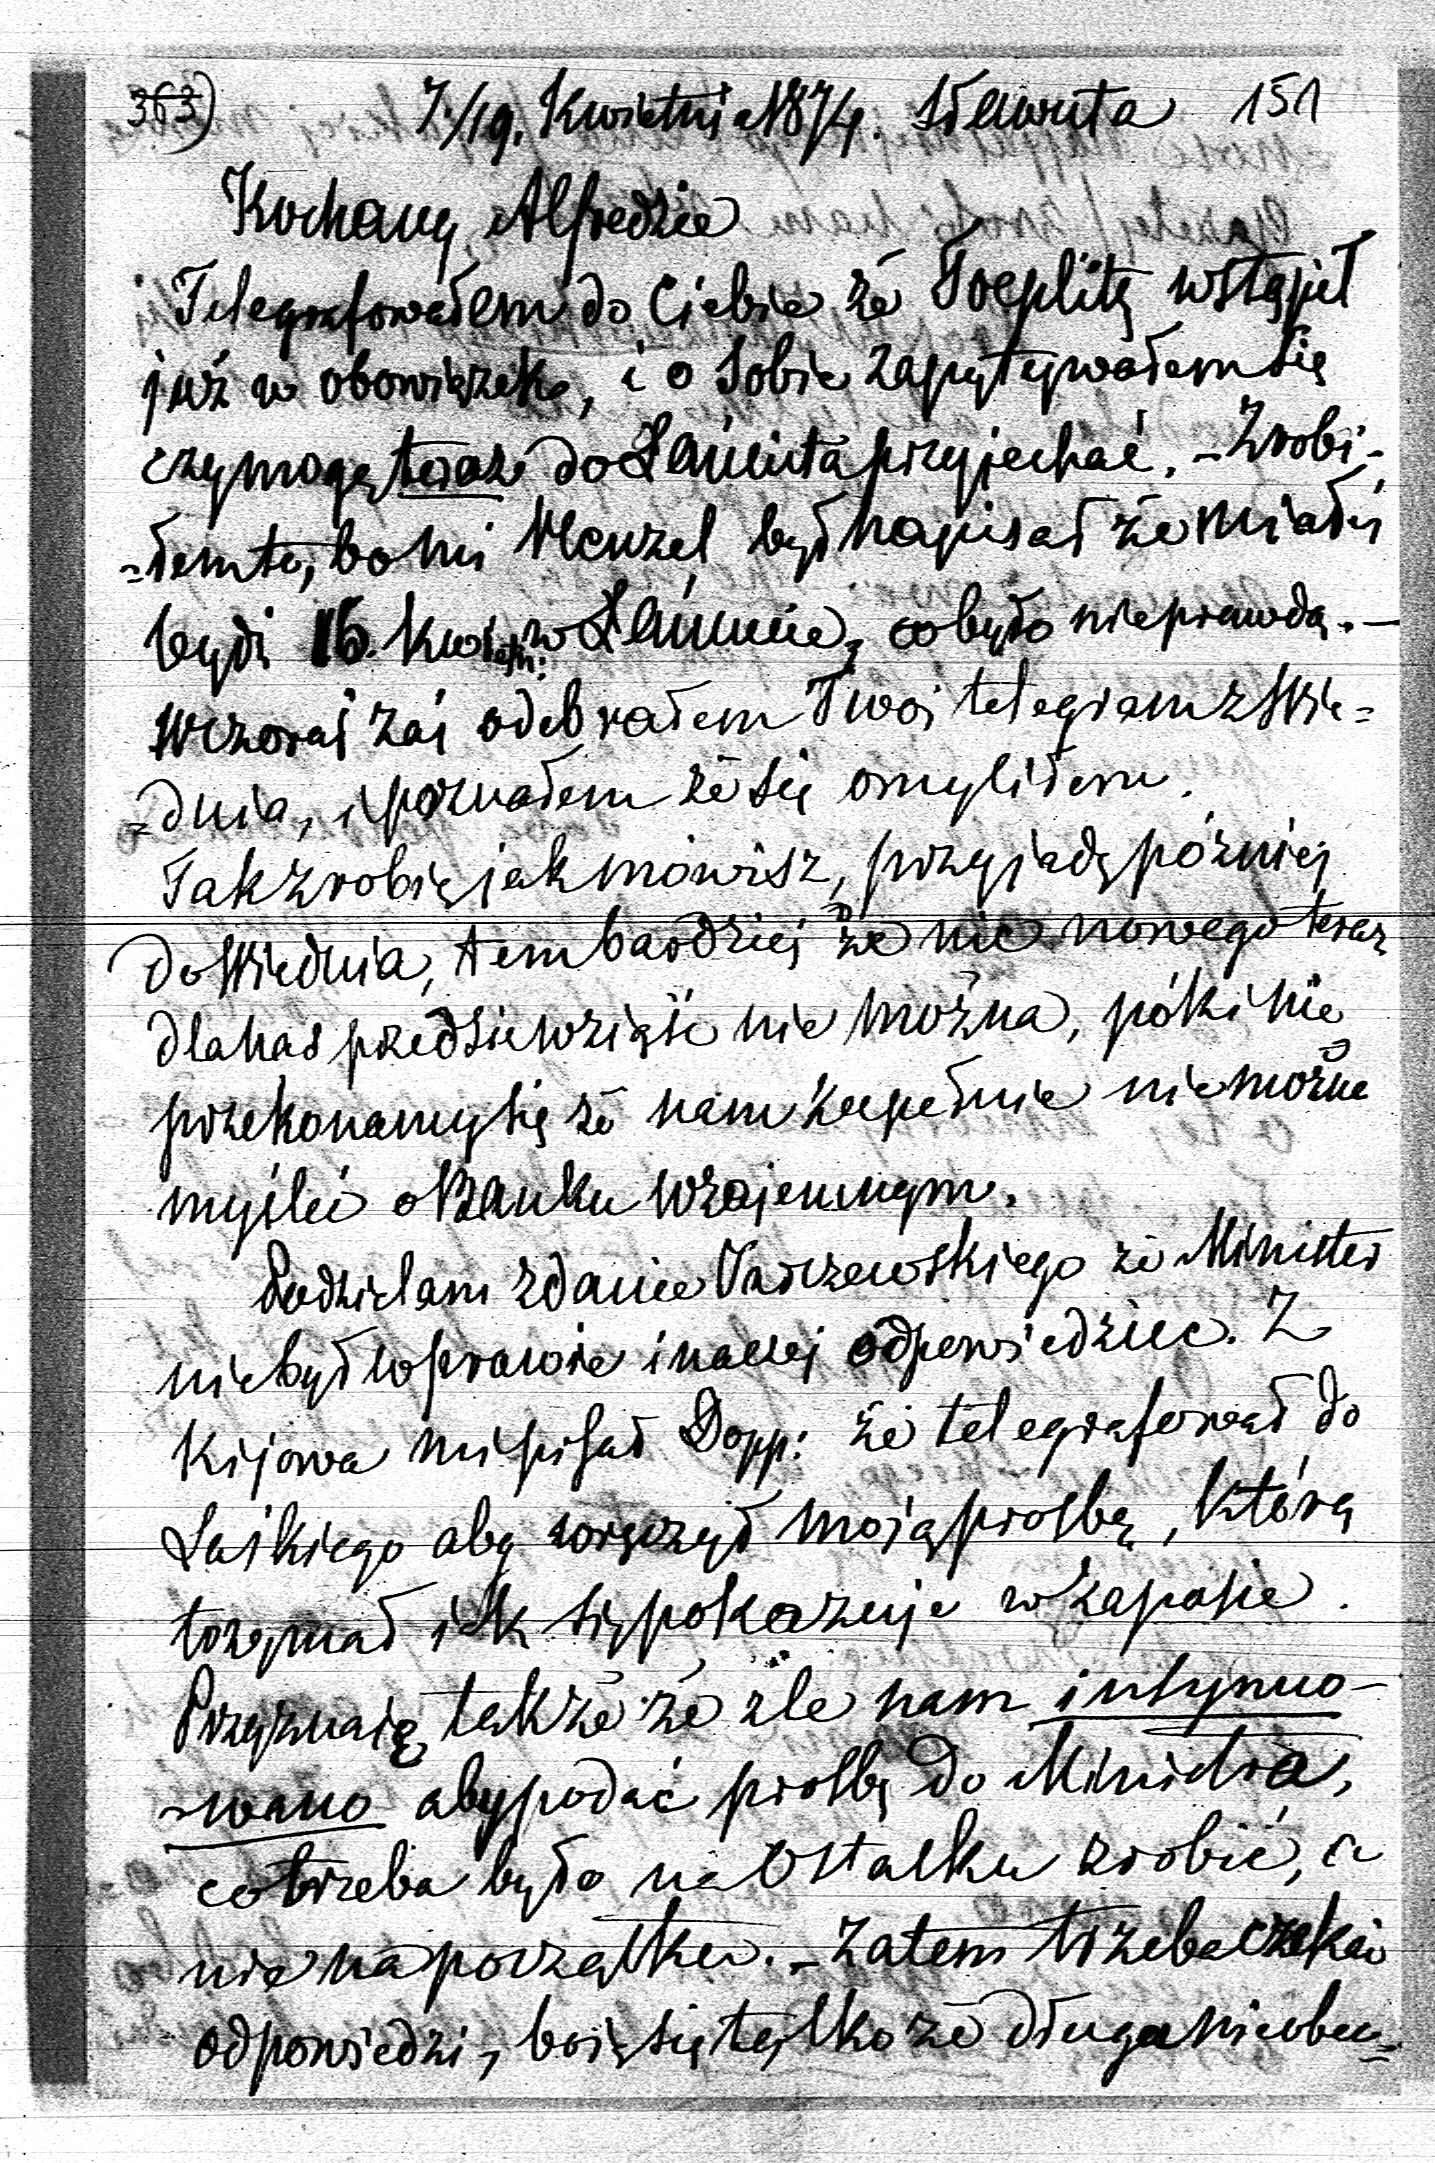 363) 7./19. Kwietnia 1874. Sławuta 151
Kochany Alfredzie
Telegrafowałem do Ciebie że Toeplitz wstąpił
już w obowiązek, i o Sobie zapytywałem się
czy mogę teraz do Łańcuta przyjechać. – Zrobi-
-łem to, bo mi Menzel był napisał że miałeś
bydź 16. Kwietn: w Łańcucie, co było nieprawdą. –
Wczoraj zaś odebrałem Twój telegram z Wie=
=dnia, i poznałem że się omyliłem.
Tak zrobię jak mówisz, przyjadę później
do Wiednia, tembardziej że nic nowego teraz
dla nas przedsiewziąść nie można, póki nie
przekonamy się że nam zupełnie nie można
myśleć o Banku Wzajemnym.
Podzielam zdanie Jarczewskiego że Minister
nie był w prawie inaczej odpowiedzieć. Z
Kijowa mi pisał Dopp: że telegrafował do
Łaskiego aby wręczył moją prośbę, którą
trzymał jak się pokazuje w zapasie.
Przyznaję także że źle nam insynuo-
-wano aby podać prośbę do Ministra,
co trzeba było na Ostatku zrobić, a
nie na początku. – Zatem trzeba czekać
odpowiedzi, boję się tylko że długa nieobec=